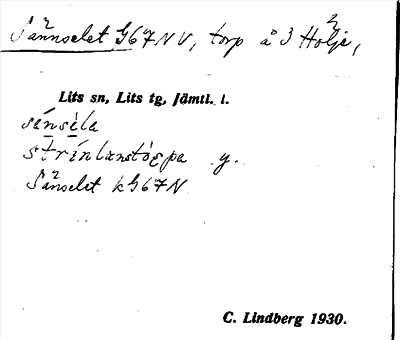 Sännselet G67NV, torp å 3 Hölje,
Lits sn, Lits tg, Jämtl. l.
sénsèla
strínlænstógpa y.
Sånselet kG67N
C. Lindberg 1930.